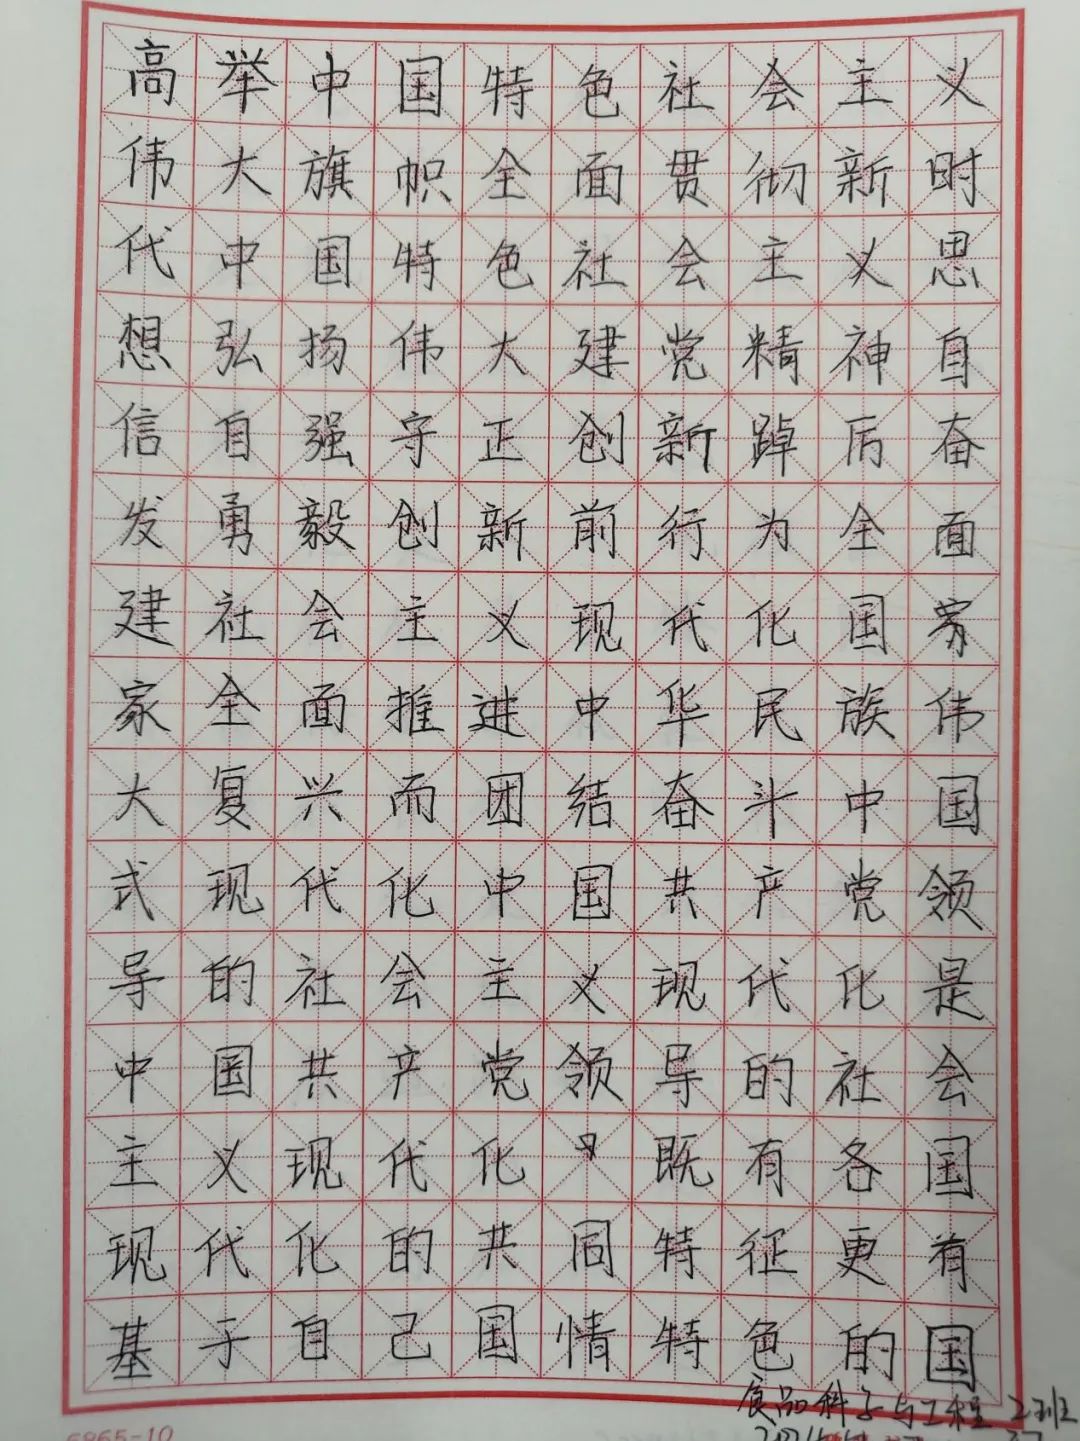 高举中国特色社会主义
伟大旗帜全面贯彻新时
代中国特色社会主义思
想弘扬伟大建党精神自
信自强守正创新踔厉奋
发勇毅创新前行为全面
建社会主义现代化国
家全面推进中华民族伟
大复兴而团结奋斗中国
式现代化中国共产党领
导的社会主义现代化是
中国共产党领导的社会
主义现代化既有各国
现代化的共同特征更有
基于自己国情特色的国
食品科学与工程 2班
6865-10